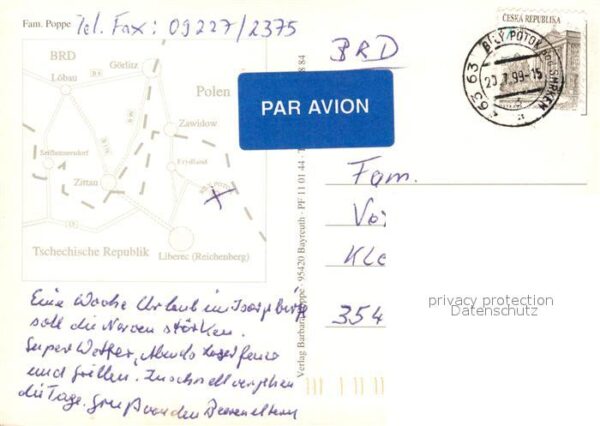 Fam. Poppe Tel. Fax: 09227/2375
BRD
Görlitz
Löbau
Polen
Zawidow
Seifhennersdorf
Frydland
Zittau
Tschechische Republik
Liberec (Reichenberg)
Eine Woche Urlaub im Isergebirge
soll die Nerven stärken.
Super Wetter, Abends Lagerfeuer
und Grillen. Zu schnell vergehen
die Tage. Gruß von den
Verlag Barbara Poppe · 95420 Bayreuth · PF 11 01 44 ·
88 84
BRD
PAR AVION
ČESKÁ REPUBLIKA
BÍLÝ POTOK POD SMRKEM
463 63
20.7.99-15
Fam.
Kle
354
privacy protection
Datenschutz